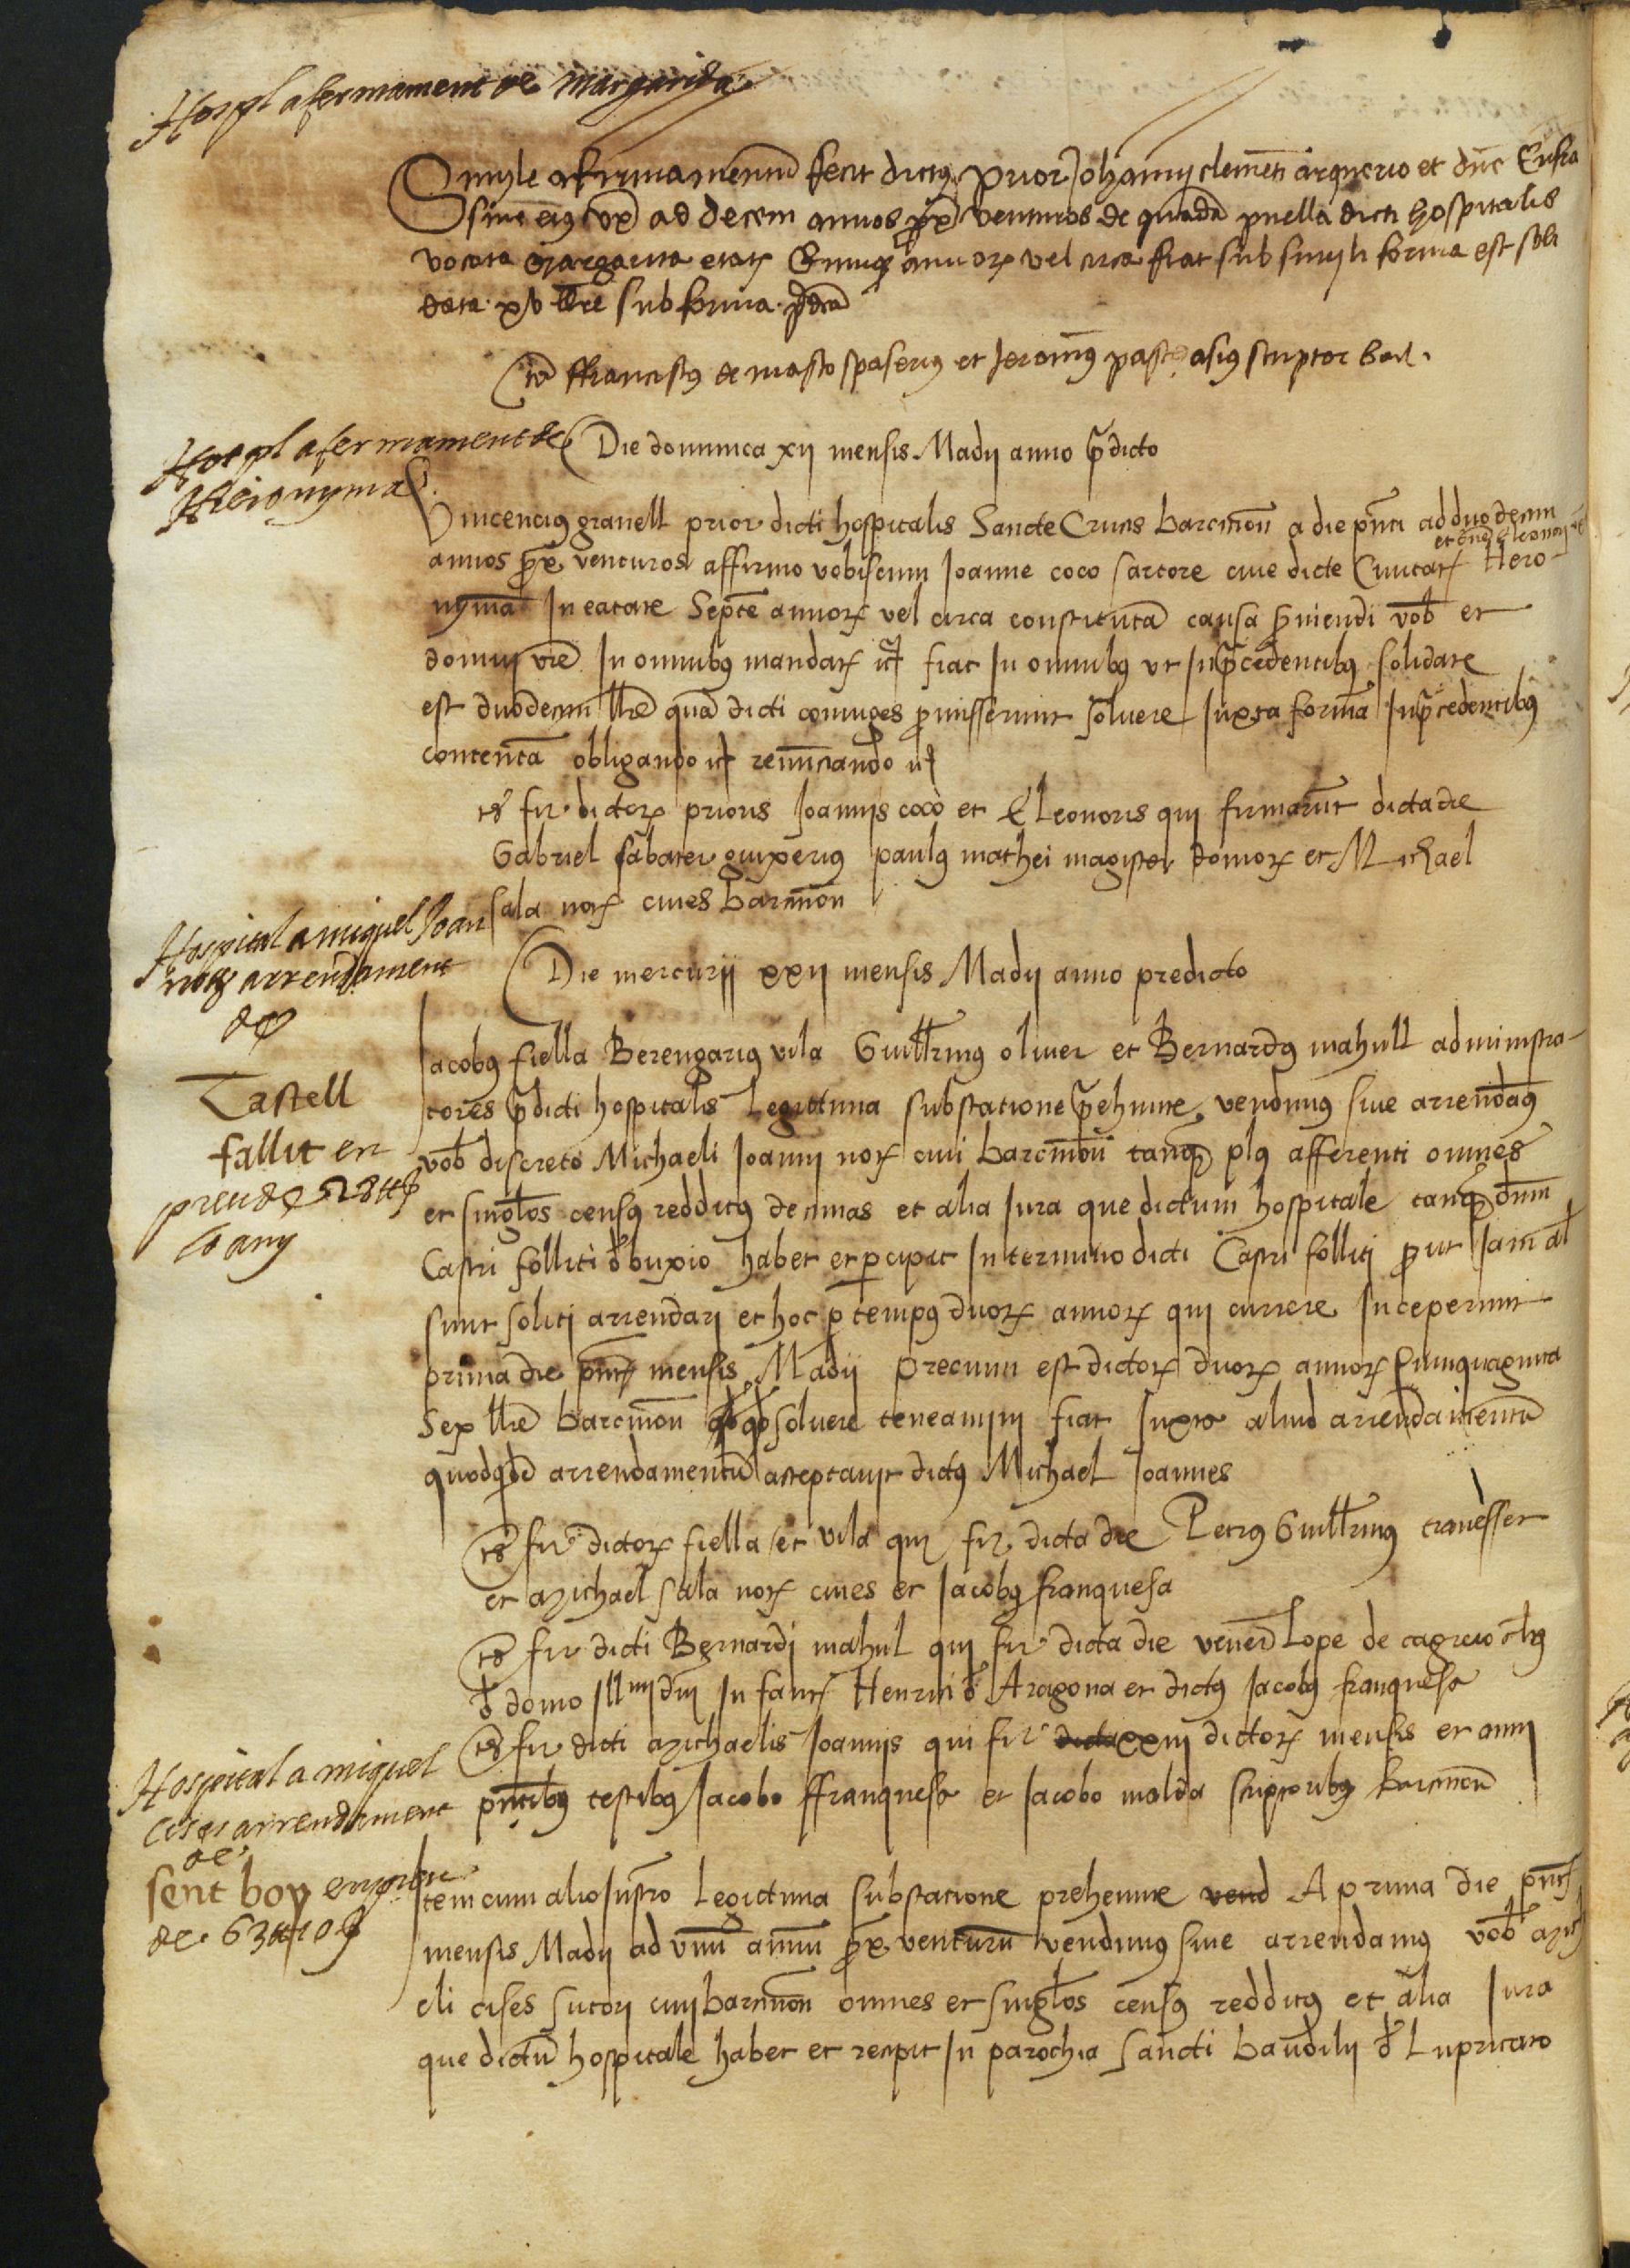 Hospl afermament de Margarida
Simyle afirmamentu fecit dictus prior Johanni clemeti arquerio et dne Eufra
sine eius ux ad decem annos px venturos de quada puella dicti hospitalis
vocata Margarita etatis annorum vel circa fiat sub simyli forma est soli
data xv llre sub forma pdca
ts ffranciscus de masto spaserius et Jeronimus scriptor bar
Hospl afermament de
Hieronyma
Die dominica xij mensis Madij anno pdicto
Vincencius granell prior dicti hospitalis Sancte Crucis barcinon a die pnti ad duodecim
annos px venturos affirmo vobiscum Joanne coco sartore cive dicte Civitatis Hiero-
nyma In eatate Septe annorum vel circa constituta causa serviendi vob et
domui vre In omnibus mandatis fiat In omnibus ut In pcedentibus solidate
est duodecim llre qua dicti coniuges pmisserunt solvere Iuxta forma In pcedentibus
contenta obligando renunciando
ts fir dictorum prioris Joannis coco et Eleonoris qui firmarut dicta die
Gabriel sabater guixerius paulus mathei magister domorum et Michael
sala not cives barcinon
Hospital a miquel Joan
not arrendament
de
Castell
follit en
preu de 28 ll
lo any
Die mercurij xxij mensis Madij anno predicto
Jacobus fiella Berengarius vila Guillmus oliver et Bernardus mahull administra-
tores pdicti hospitalis Legittima substatione pehunte vendimus sive arrendamus
vob discreto Michaeli Joanni not civi barcinon tanq plus afferenti omnes
et singlos census redditus decimas et alia Iura que dictum hospitale tanq dnm
Castri folliti d buxio habet et percipit In termino dicti Castri folliti put Iam al
sunt soliti arrendari et hoc p tempus duorum annorum qui currere Inceperunt
prima die pntis mensis Madij precium est dictorum duorum annorum Quinquaginta
Sex llre barcinon solvere teneamini fiat Iuxta aliud arrendamentu
quodquide arrendamentu acceptavit dictus Michael Joannes
ts fir dictorum fiella et vila qui fir dicta die Petrus Guillmus travesser
et Michael sala not cives et Jacobus franquesa
ts fir dicti Bernardi mahul qui fir dicta die Lope de
d domo Illmi dni Infantis Henrici d Aragona et dictus Jacobus franquesa
ts fir dicti Michaelis Joannis qui fir dicta xxiij dictorum mensis et anni
pntibus testibus Jacobo ffranquesa et Jacobo molda scriptoribus barcinon
Hospital a miquel
cises arrendament
de
sent boy en preu
de 63 ll 10 s
Item cum alio Instro Legittima substatione prehunte vend A prima die pntis
mensis Madij ad unu annu px venturu vendimus sive arrendamus vob Mich
eli cises sutori civi barcinon omnes et singlos census redditus et alia Iura
que dictu hospitale habet et recipit In parochia Sancti baudilij d Lupricato